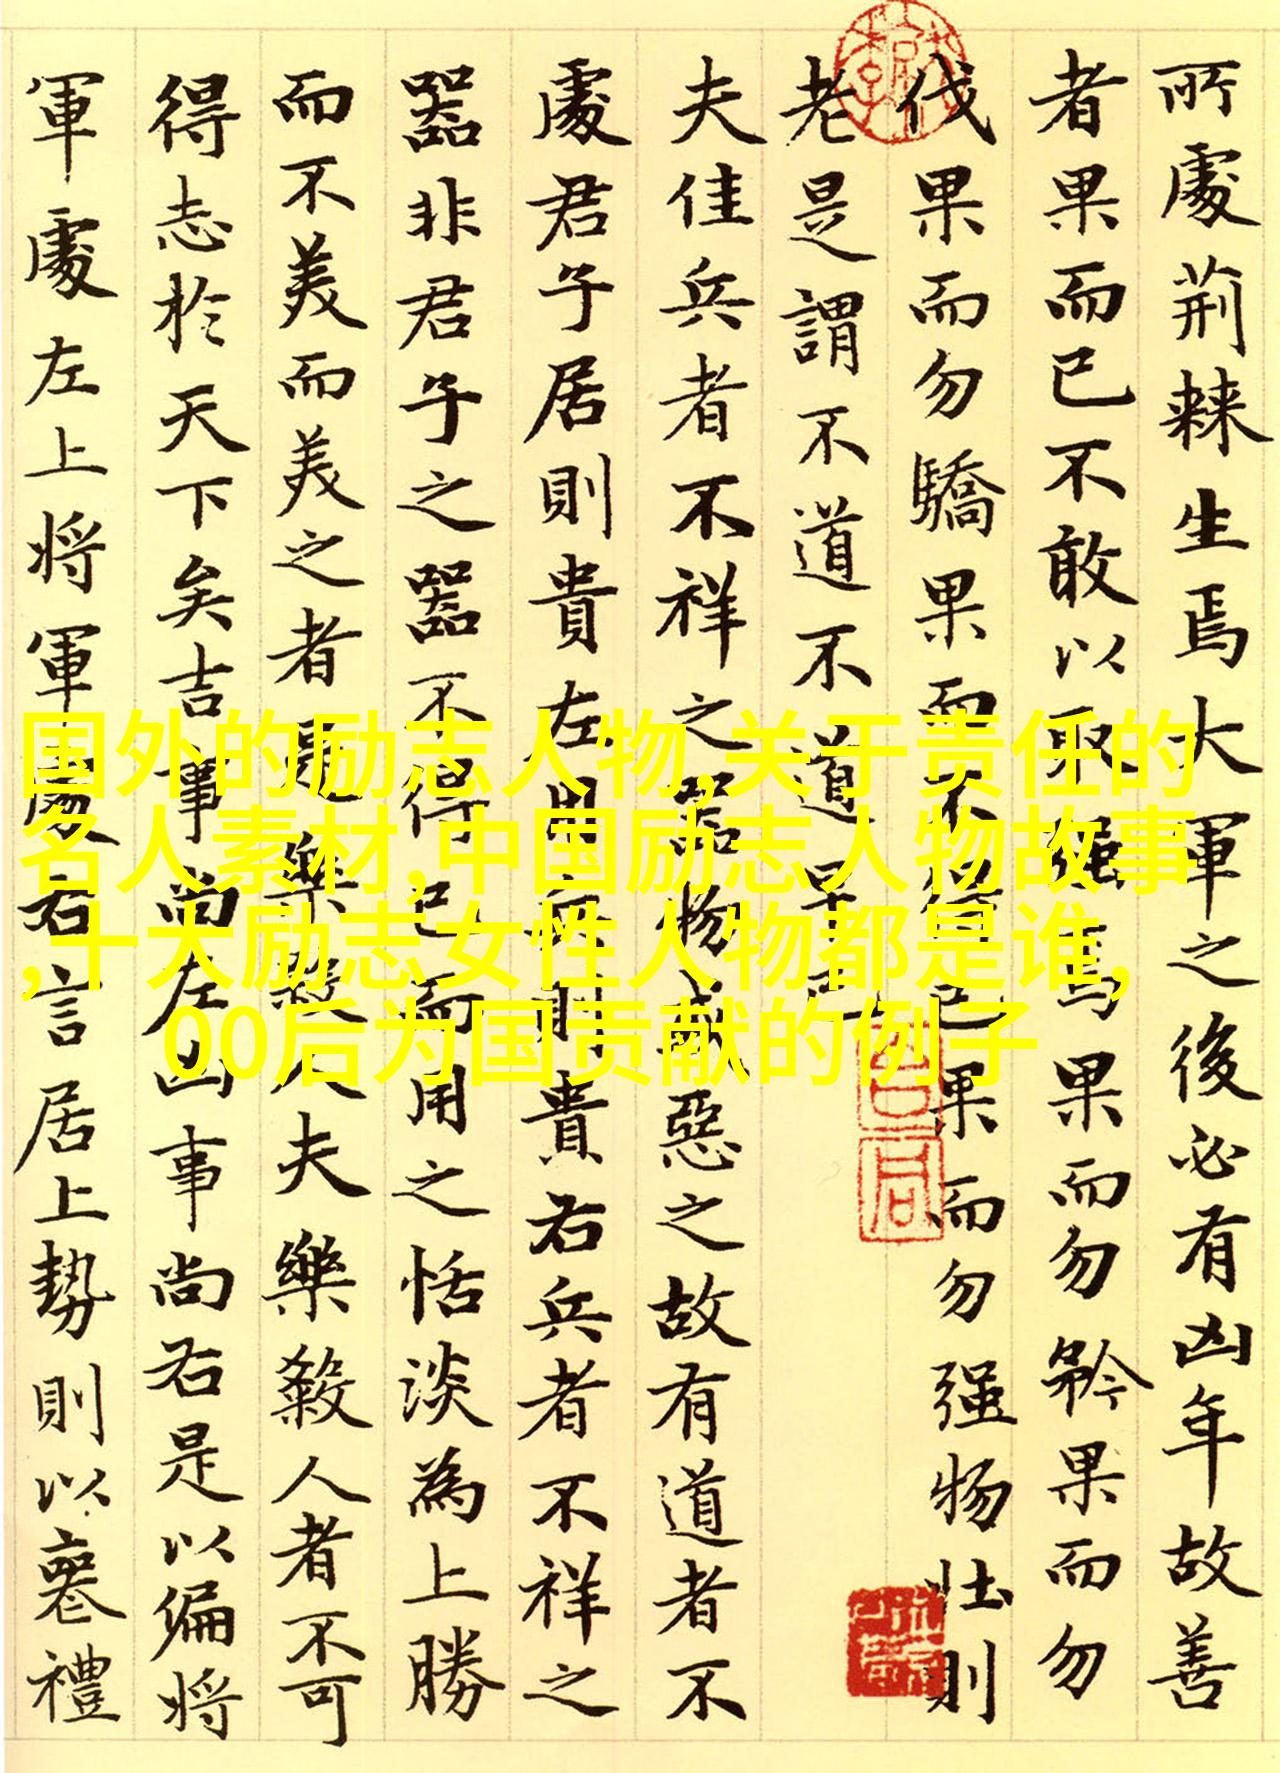 所處荆棘生焉大軍之後必有凶年故善
者果而已不敢以取强焉果而勿矜果而勿
伐果而勿驕果而不得已果而勿强物壮則
老是謂不道不道早已
夫佳兵者不祥之器物或惡之故有道者不
處君子居則貴左用兵則貴右兵者不祥之
器非君子之器不得已而用之恬淡為上勝
而不美而美之者是樂殺人夫樂殺人者不可
得志於天下矣吉事尚左凶事尚右是以偏將
軍處左上將軍處右言居上勢則以喪禮
国外的励志人物,关于责任的
名人素材,中国励志人物故事
,十大励志女性人物都是谁,
00后为国贡献的例子